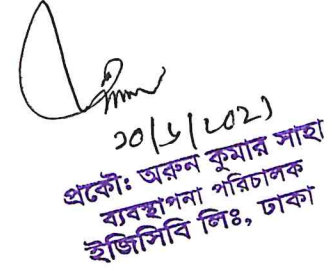 প্রকৌঃ অরুন কুমার সাহা
ব্যবস্থাপনা পরিচালক
ইজিসিবি লিঃ, ঢাকা